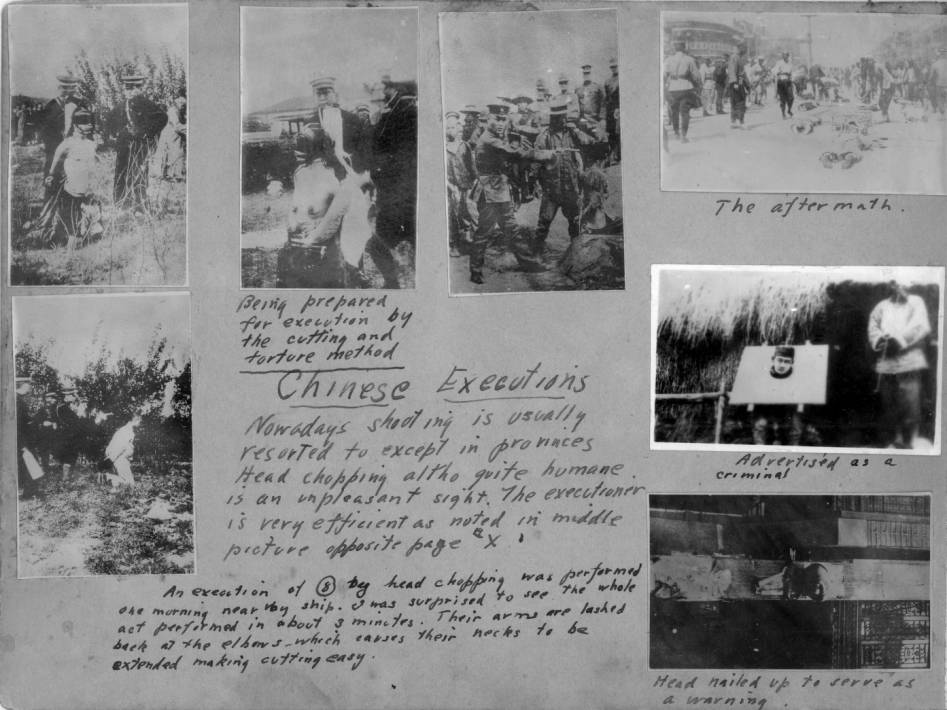 The aftermath.
Being prepared
for execution by
the cutting and
torture method
Chinese Executions
Nowadays shooting is usually
resorted to except in provinces
Head chopping altho quite humane
is an unpleasant sight. The executioner
is very efficient as noted in middle
picture opposite page "X"
Advertised as a
criminal
An execution of 8 by head chopping was performed
one morning near my ship. I was surprised to see the whole
act performed in about 3 minutes. Their arms are lashed
back at the elbows which causes their necks to be
extended making cutting easy.
Head nailed up to serve as
a warning.